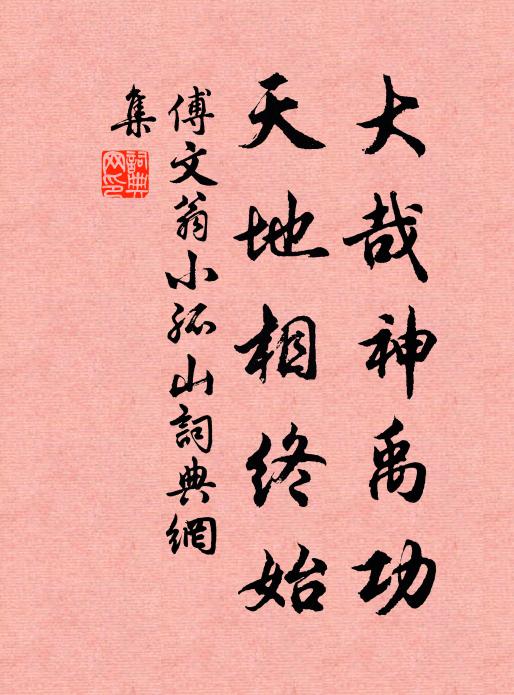 大哉神禹功
天地相終始
傅文翁小孤山詞典網
集
詞典
网印